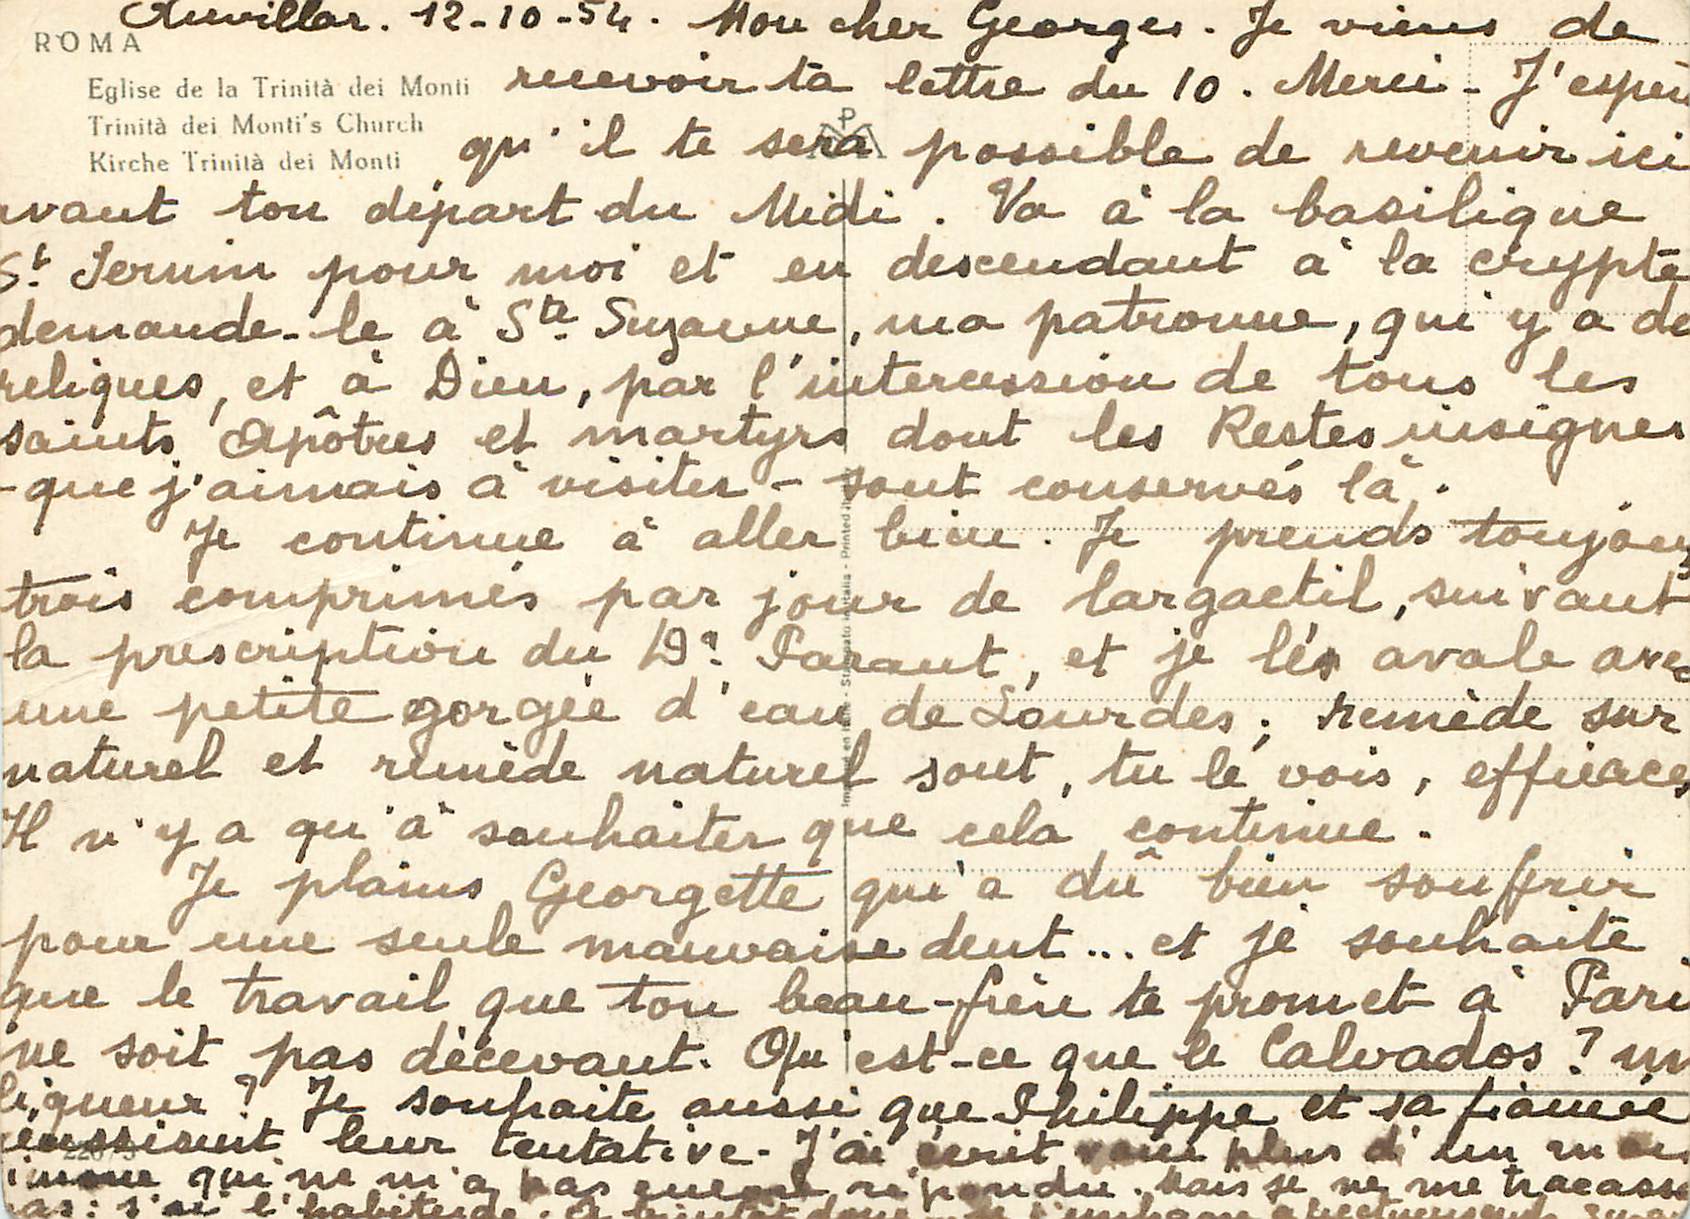 Auvillar. 12-10-54. Mon cher Georges. Je viens de
ROMA
Eglise de la Trinità dei Monti
Trinità dei Monti's Church
Kirche Trinità dei Monti
recevoir ta lettre du 10. Merci - J'espèr
qu'il te sera possible de revenir ici
avant ton départ du Midi. Va à la basilique
St. Sernin pour moi et en descendant à la crypte
demande-le à Ste Suzanne, ma patronne, qui y a de
reliques, et à Dieu, par l'intercession de tous les
saints Apôtres et martyrs dont les Restes insignes
- que j'aimais à visiter - sont conservés là.
Je continue à aller bien. Je prends toujours
trois comprimés par jour de largactil, suivant
la prescription du Dr. Parant, et je les avale avec
une petite gorgée d'eau de Lourdes; remède sur
naturel et remède naturel sont, tu le vois, efficaces
Il n'y a qu'à souhaiter que cela continue.
Je plains Georgette qui a dû bien souffrir
pour une seule mauvaise dent... et je souhaite
que le travail que ton beau-frère te promet à Pari
ne soit pas décevant. Qu'est-ce que le Calvados? un
liqueur? Je souhaite aussi que Philippe et sa fiancée
réussissent leur tentative. J'ai écrit plus d'un mois
qui ne m'a pas encore répondu. Mais je ne me tracasse
pas: j'ai l'habitude.